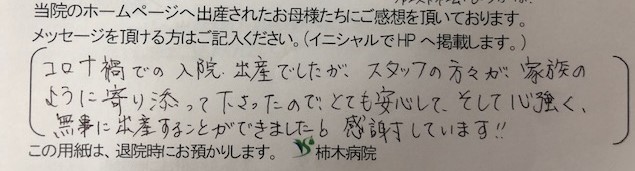 当院のホームページへ出産されたお母様たちにご感想を頂いております。
メッセージを頂ける方はご記入ください。(イニシャルでHPへ掲載します。)
コロナ禍での入院、出産でしたが、スタッフの方々が、家族の
ように寄り添って下さったので、とても安心して、そして心強く、
無事に出産することができました。感謝しています!!
この用紙は、退院時にお預かりします。 柿木病院